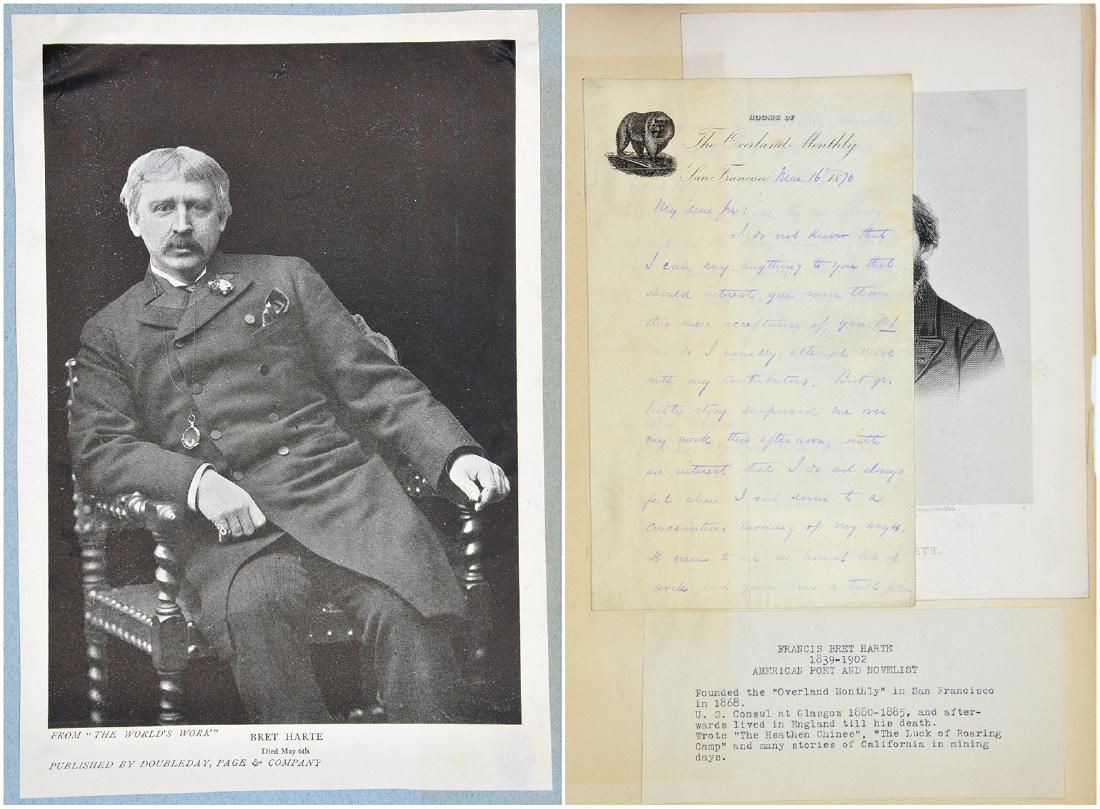 FROM "THE WORLD'S WORK"
BRET HARTE
Died May 6th
PUBLISHED BY DOUBLEDAY, PAGE & COMPANY
ROOMS OF
The Overland Monthly
San Francisco, Mar 16 1870
My dear Sir:
I do not know that
I can say anything to you that
should interest you more than
this mere acceptance of your MS
nor do I usually attempt more
with my contributors. But yr.
little story surprised me over
my work this afternoon, with
an interest that I do not always
feel when I sit down to a
conscientious of my
It seems to me an honest bit of
work and
New York
RTE.
FRANCIS BRET HARTE
1839-1902
AMERICAN POET AND NOVELIST
Founded the "Overland Monthly" in San Francisco
in 1868.
U. S. Consul at Glasgow 1880-1885, and after-
wards lived in England till his death.
Wrote "The Heathen Chinee", "The Luck of Roaring
Camp" and many stories of California in mining
days.